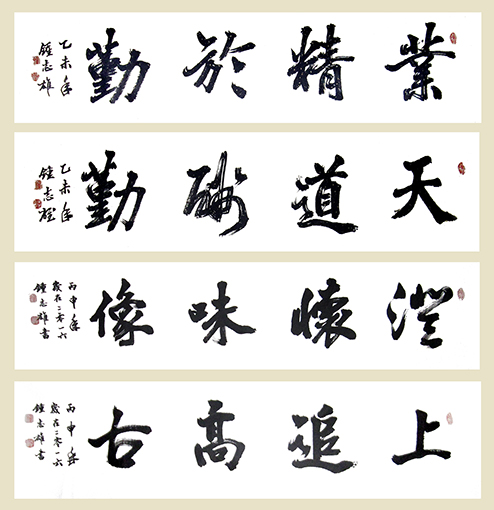 業精於勤
乙未年
鍾志雄
天道酬勤
乙未年
鍾志雄
澄懷味像
丙申年
歲在二零一六
鍾志雄書
上追高古
丙申年
歲在二零一六
鍾志雄書